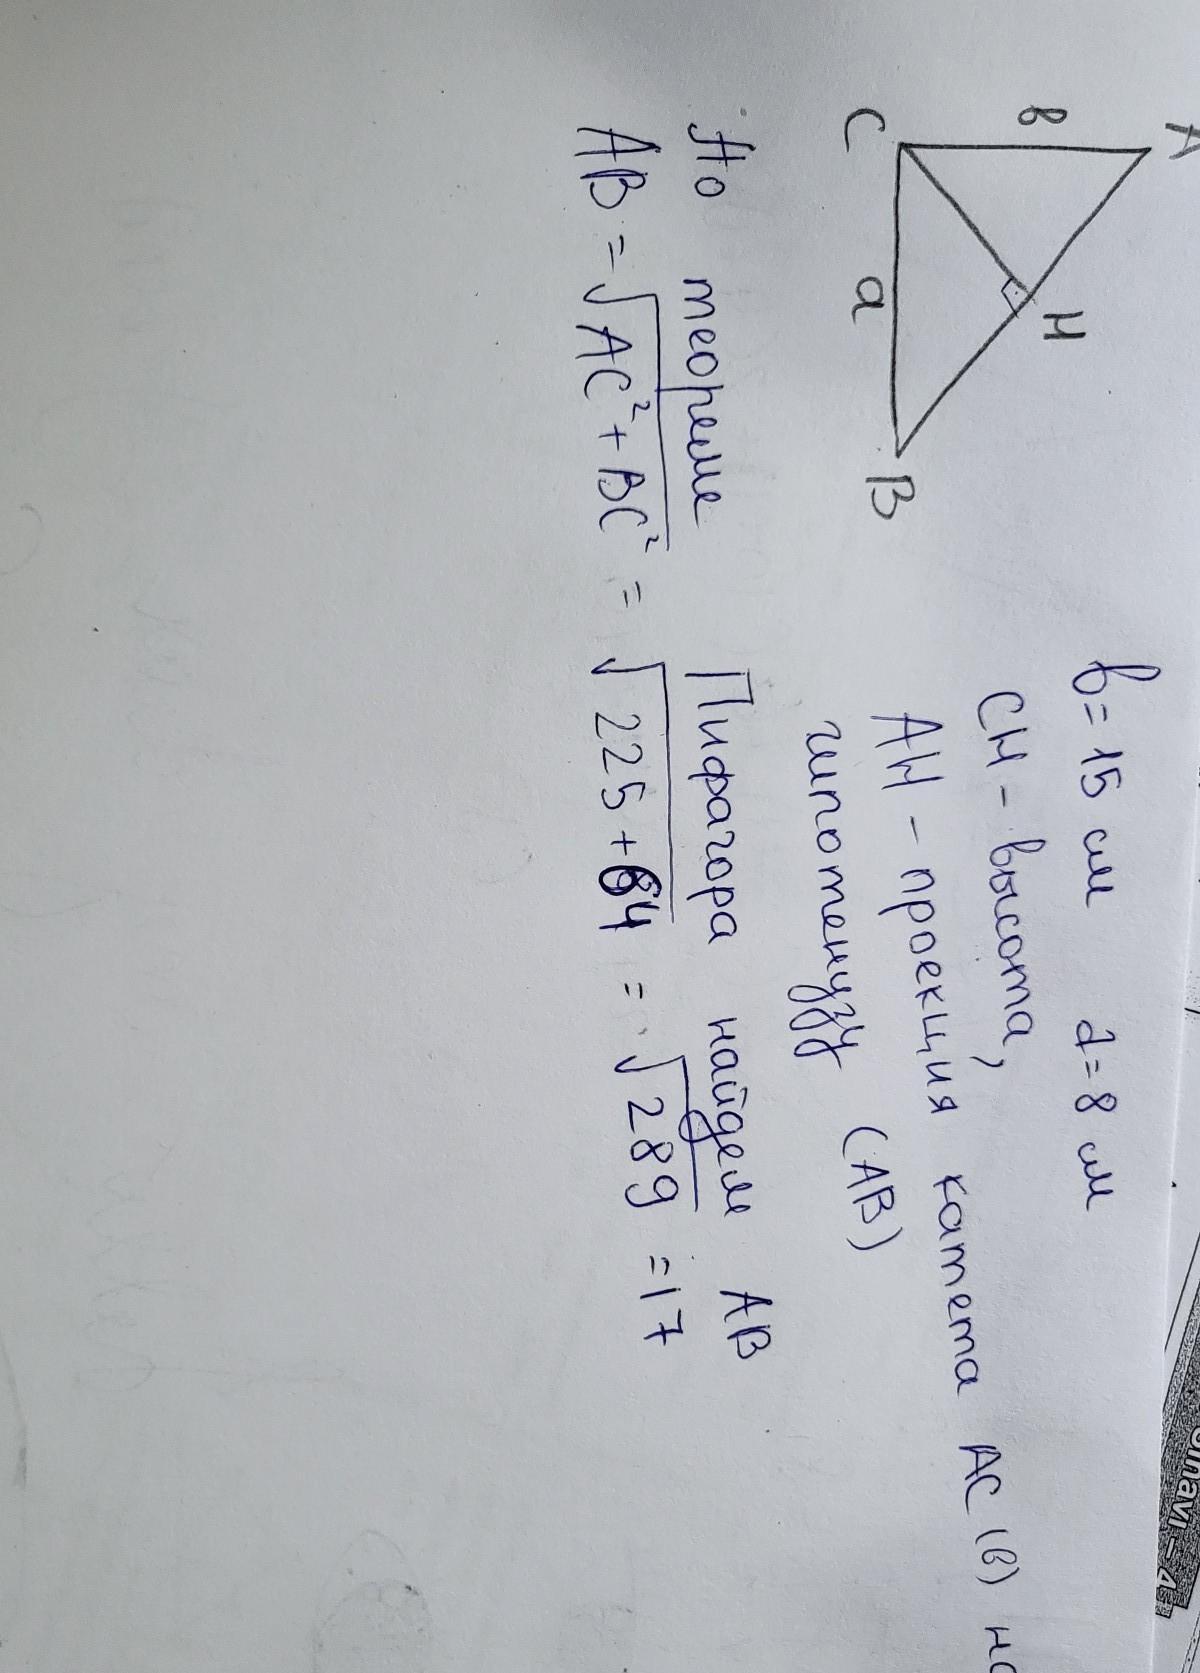 A
в
H
C
a
B
в = 15 см
= 8 см
CH - высота,
AH - проекция катета AC (в)
гипотенузу (AB)
По теореме Пифагора найдем AB
AB = √AC² + BC² = √225 + 64 = √289 = 17